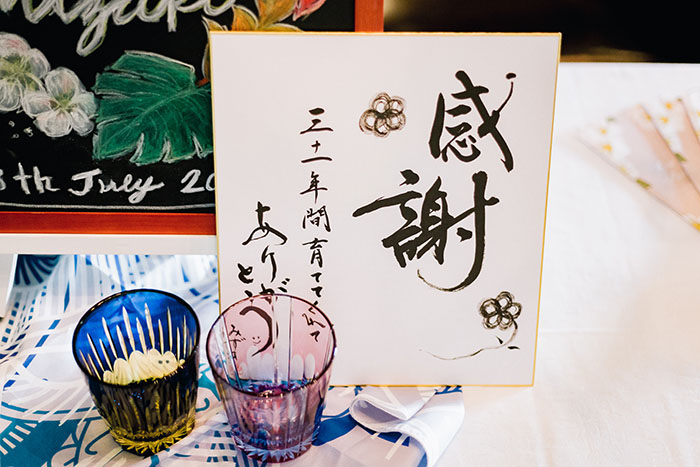 th July 20
感謝
三十一年間育ててくれて
ありがとう
みず